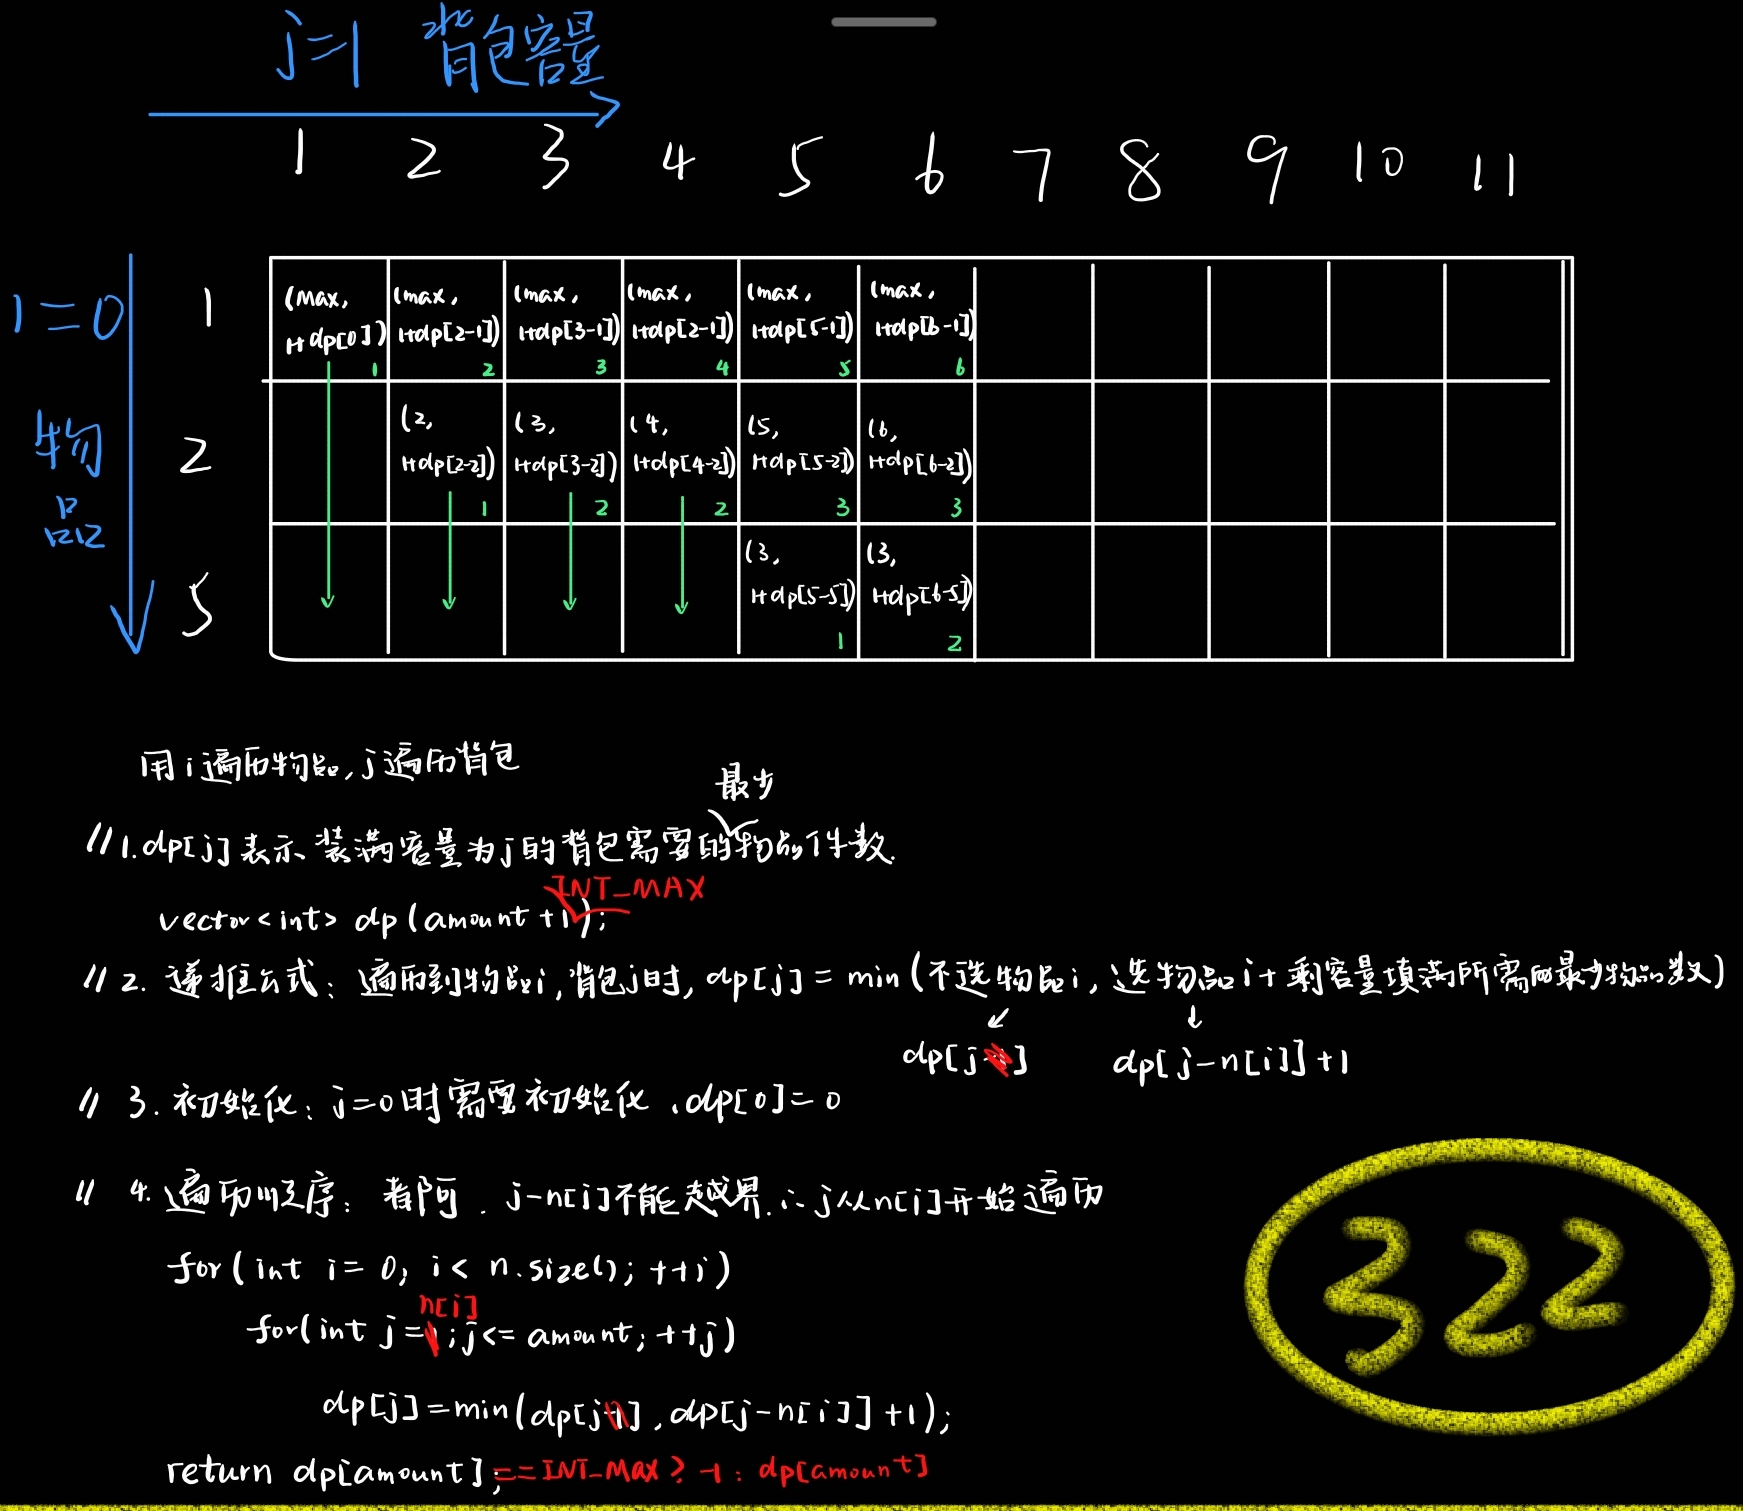 j=1 背包容量
1 2 3 4 5 6 7 8 9 10 11
i=0
物品
1
(max, 1+dp[0]) 1
(max, 1+dp[2-1]) 2
(max, 1+dp[3-1]) 3
(max, 1+dp[2-1]) 4
(max, 1+dp[5-1]) 5
(max, 1+dp[6-1]) 6
2
(2, 1+dp[2-2]) 1
(3, 1+dp[3-2]) 2
(4, 1+dp[4-2]) 2
(5, 1+dp[5-2]) 3
(6, 1+dp[6-2]) 3
5
(3, 1+dp[5-5]) 1
(3, 1+dp[6-5]) 2
用i遍历物品,j遍历背包
最少
//1.dp[j]表示装满容量为j的背包需要的物品件数.
INT_MAX
vector<int> dp(amount+1);
//2. 递推公式: 遍历到物品i,背包j时, dp[j] = min(不选物品i, 选物品i+剩容量填满所需的最少物品数)
dp[j] dp[j-n[i]]+1
// 3. 初始化: j=0时需要初始化.dp[0]=0
// 4. 遍历顺序: 都可. j-n[i]不能越界.∴j从n[i]开始遍历
for(int i = 0; i < n.size(); ++i)
n[i]
for(int j = ; j<= amount; ++j)
dp[j]=min(dp[j],dp[j-n[i]]+1);
return dp[amount];==INT_MAX? -1: dp[amount]
322